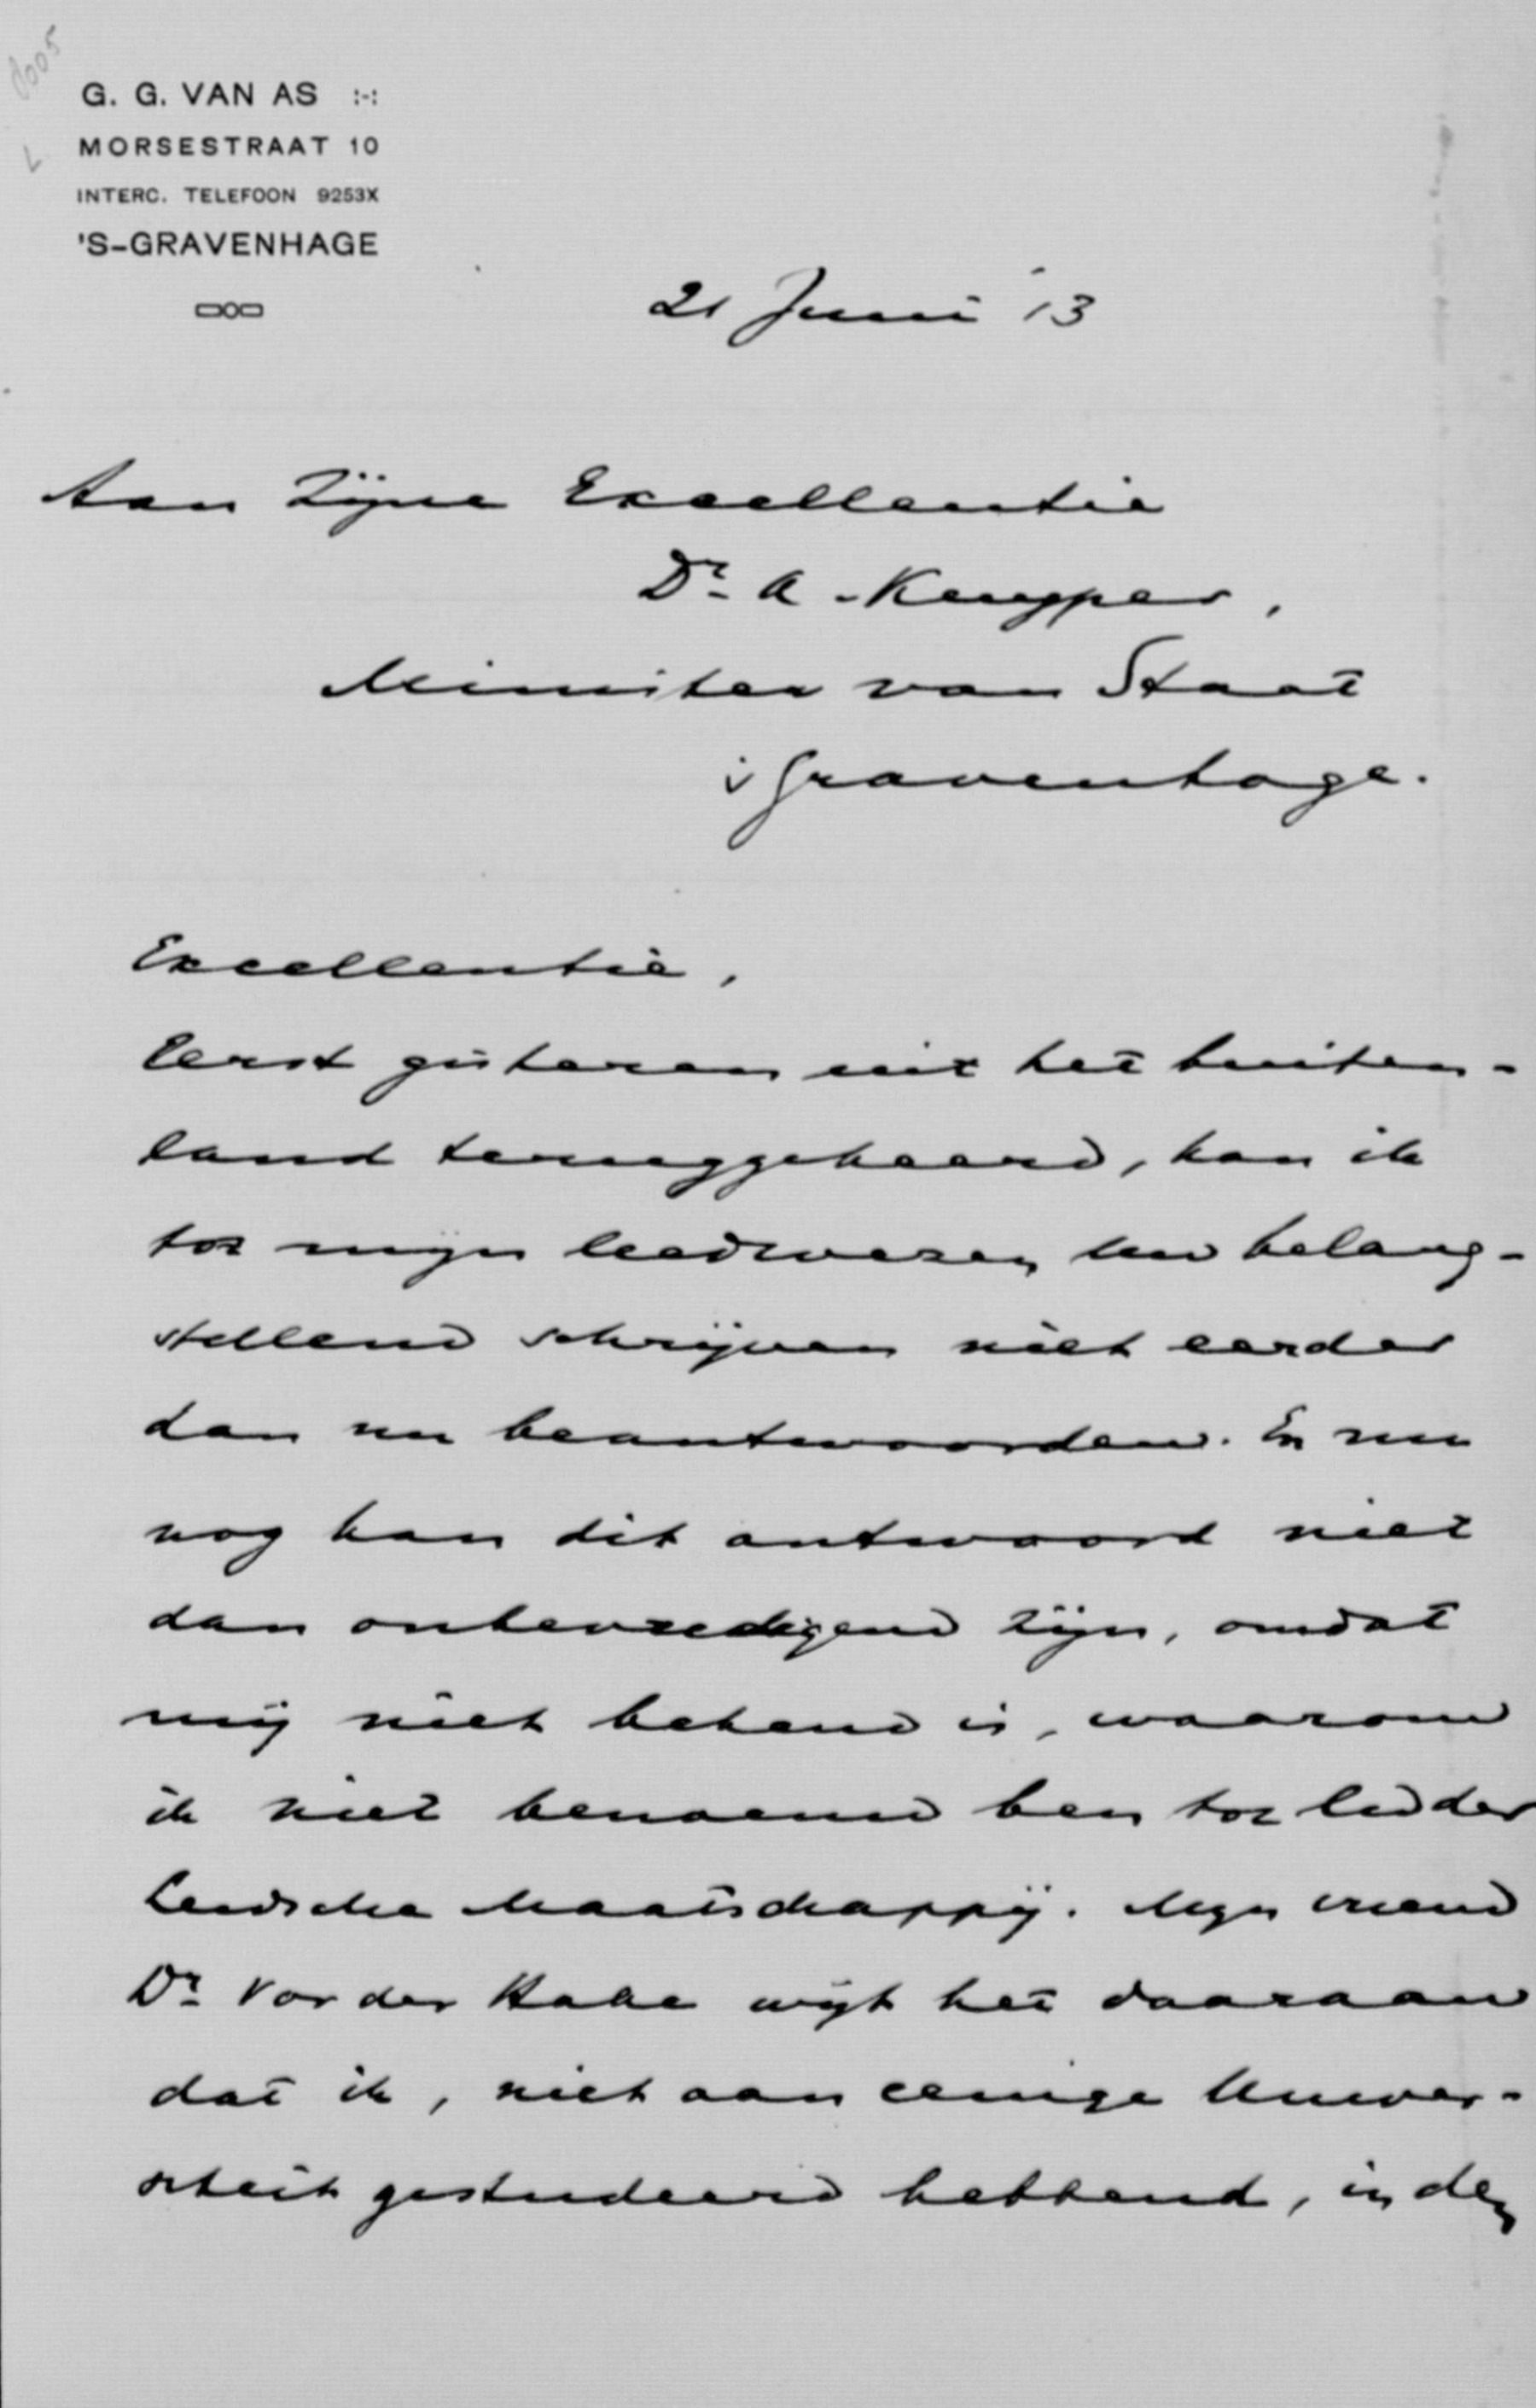 8005
L
G. G. VAN AS :-:
MORSESTRAAT 10
INTERC. TELEFOON 9253X
'S-GRAVENHAGE
21 Juni '13
Aan Zijne Excellentie
Dr. A. Kuyper,
Minister van Staat
's Gravenhage.
Excellentie,
Eerst gisteren uit het buiten-
land teruggekeerd, kan ik
tot mijn leedwezen Uw belang-
stellend schrijven niet eerder
dan nu beantwoorden. En nu
nog kan dit antwoord niet
dan onbevredigend zijn, omdat
mij niet bekend is, waarom
ik niet benoemd ben tot lid der
Leidsche Maatschappij. Mijn vriend
Dr. Vor der Hake wijt het daaraan
dat ik, niet aan eenige Univer-
siteit gestudeerd hebbend, in den